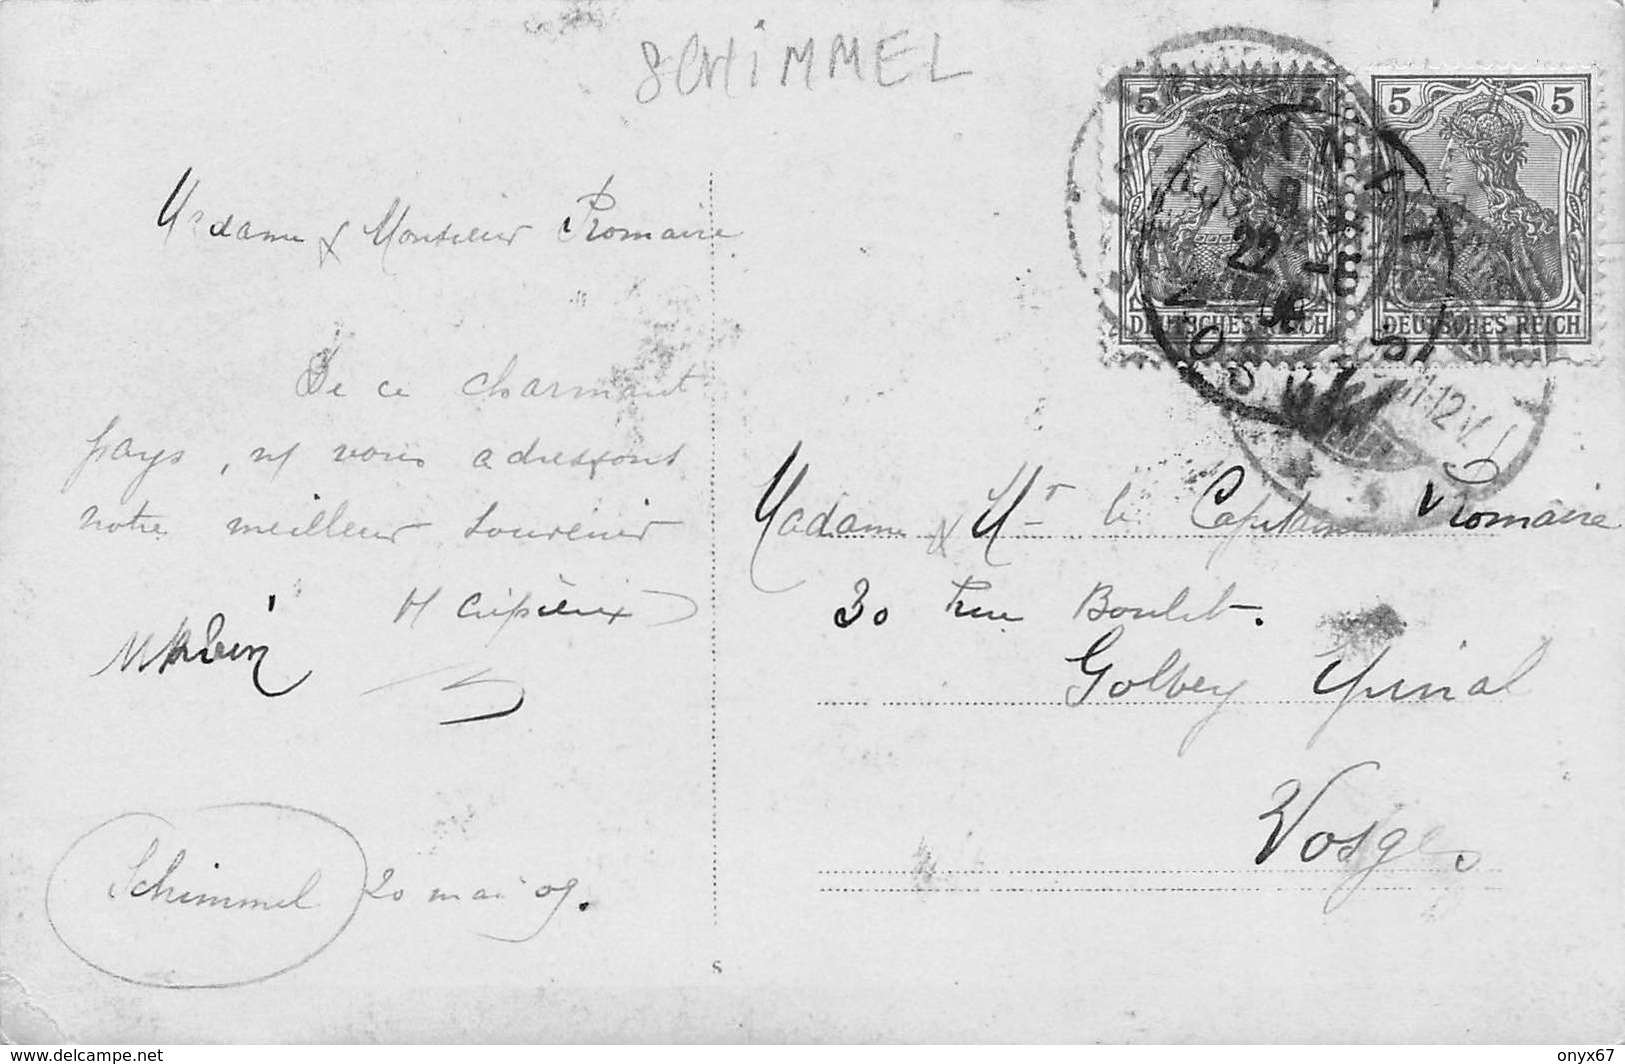 SCHIMMEL
5 5
5 5
DEUTSCHES REICH
DEUTSCHES REICH
22
11-12V.
Madame & Monsieur Romaire
De ce charmant
pays, vous adressons
notre meilleur souvenir
Schimmel 20 mai 09.
Madame & Mr le Capitaine Romaire
30 rue Boulet.
Golbey Epinal
Vosges
S
www.delcampe.net
onyx67